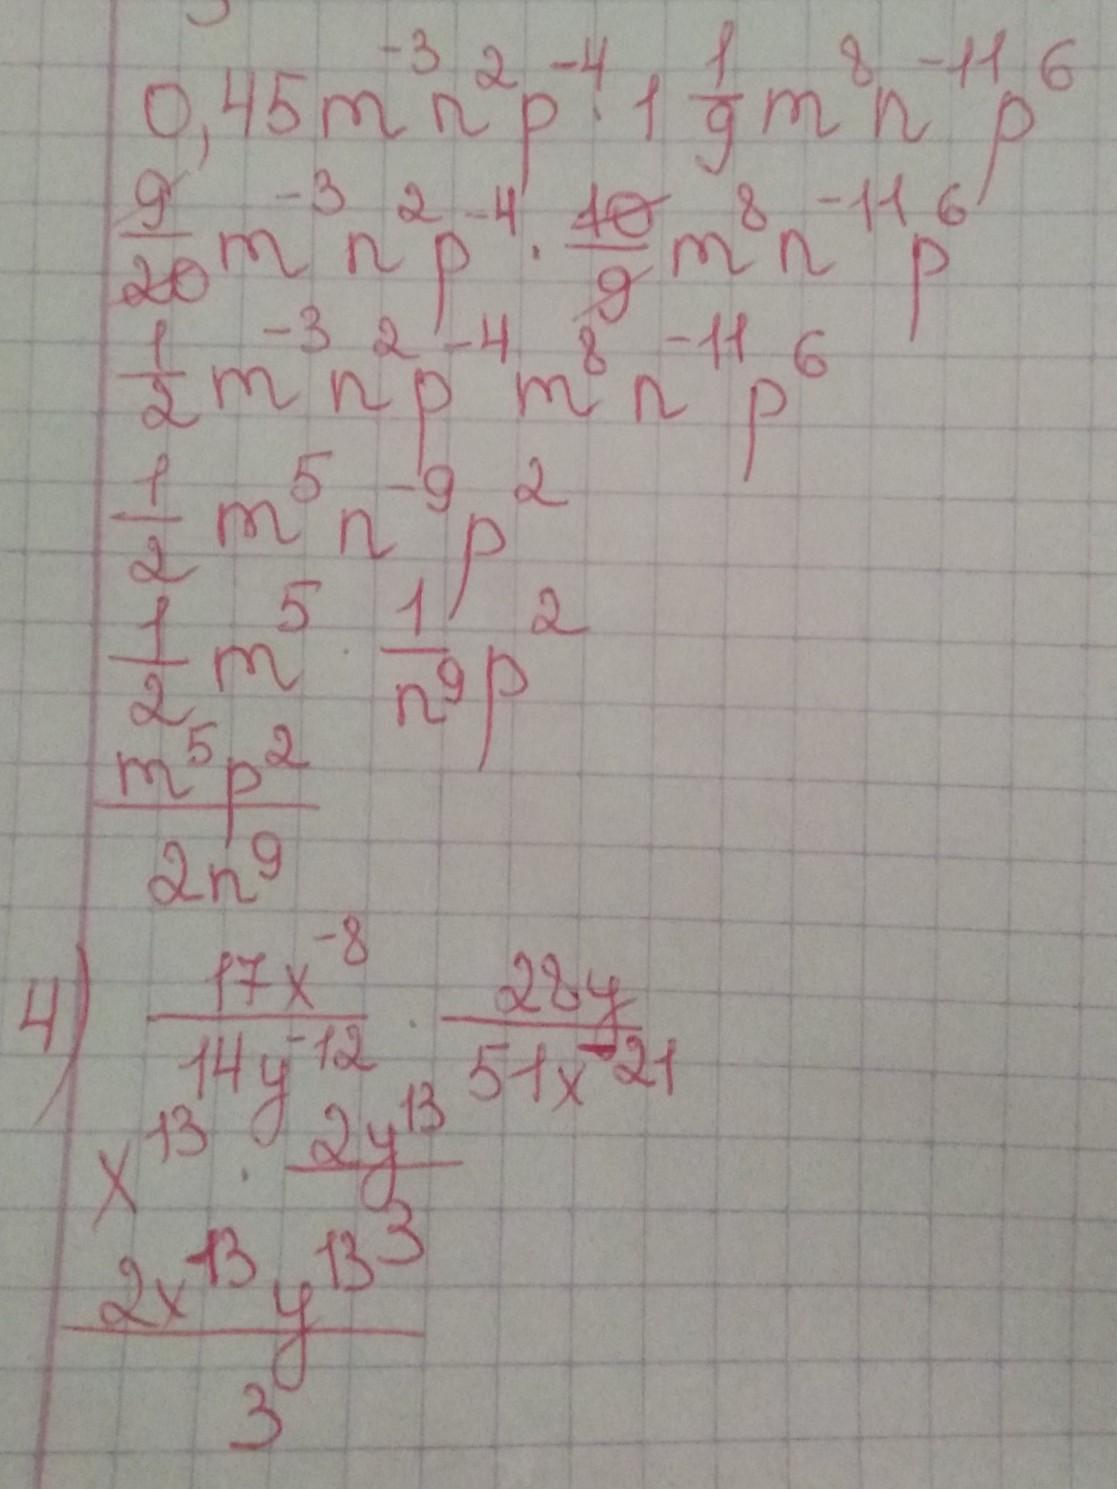 0,45m⁻³n²p⁻⁴ · 1 1/9 m⁸n⁻¹¹p⁶
9/20 m⁻³n²p⁻⁴ · 10/9 m⁸n⁻¹¹p⁶
1/2 m⁻³n²p⁻⁴m⁸n⁻¹¹p⁶
1/2 m⁵n⁻⁹p²
1/2 m⁵ · 1/n⁹ p²
m⁵p²/2n⁹
4) 17x⁻⁸/14y⁻¹² · 28y/51x⁻²¹
x¹³ · 2y¹³/3
2x¹³y¹³/3